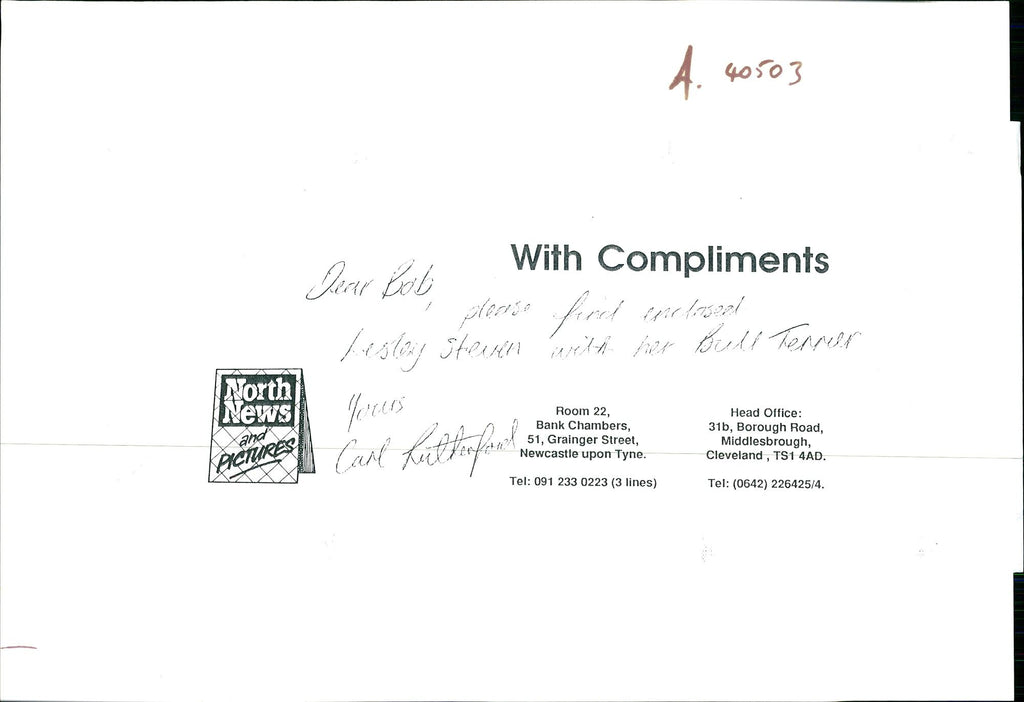 A. 40503
With Compliments
Dear Bob,
please find enclosed
Lesley Steven with her Bull Terrier
Yours
Carl Rutherford
North
News
and
PICTURES
Room 22,
Bank Chambers,
51, Grainger Street,
Newcastle upon Tyne.
Tel: 091 233 0223 (3 lines)
Head Office:
31b, Borough Road,
Middlesbrough,
Cleveland , TS1 4AD.
Tel: (0642) 226425/4.